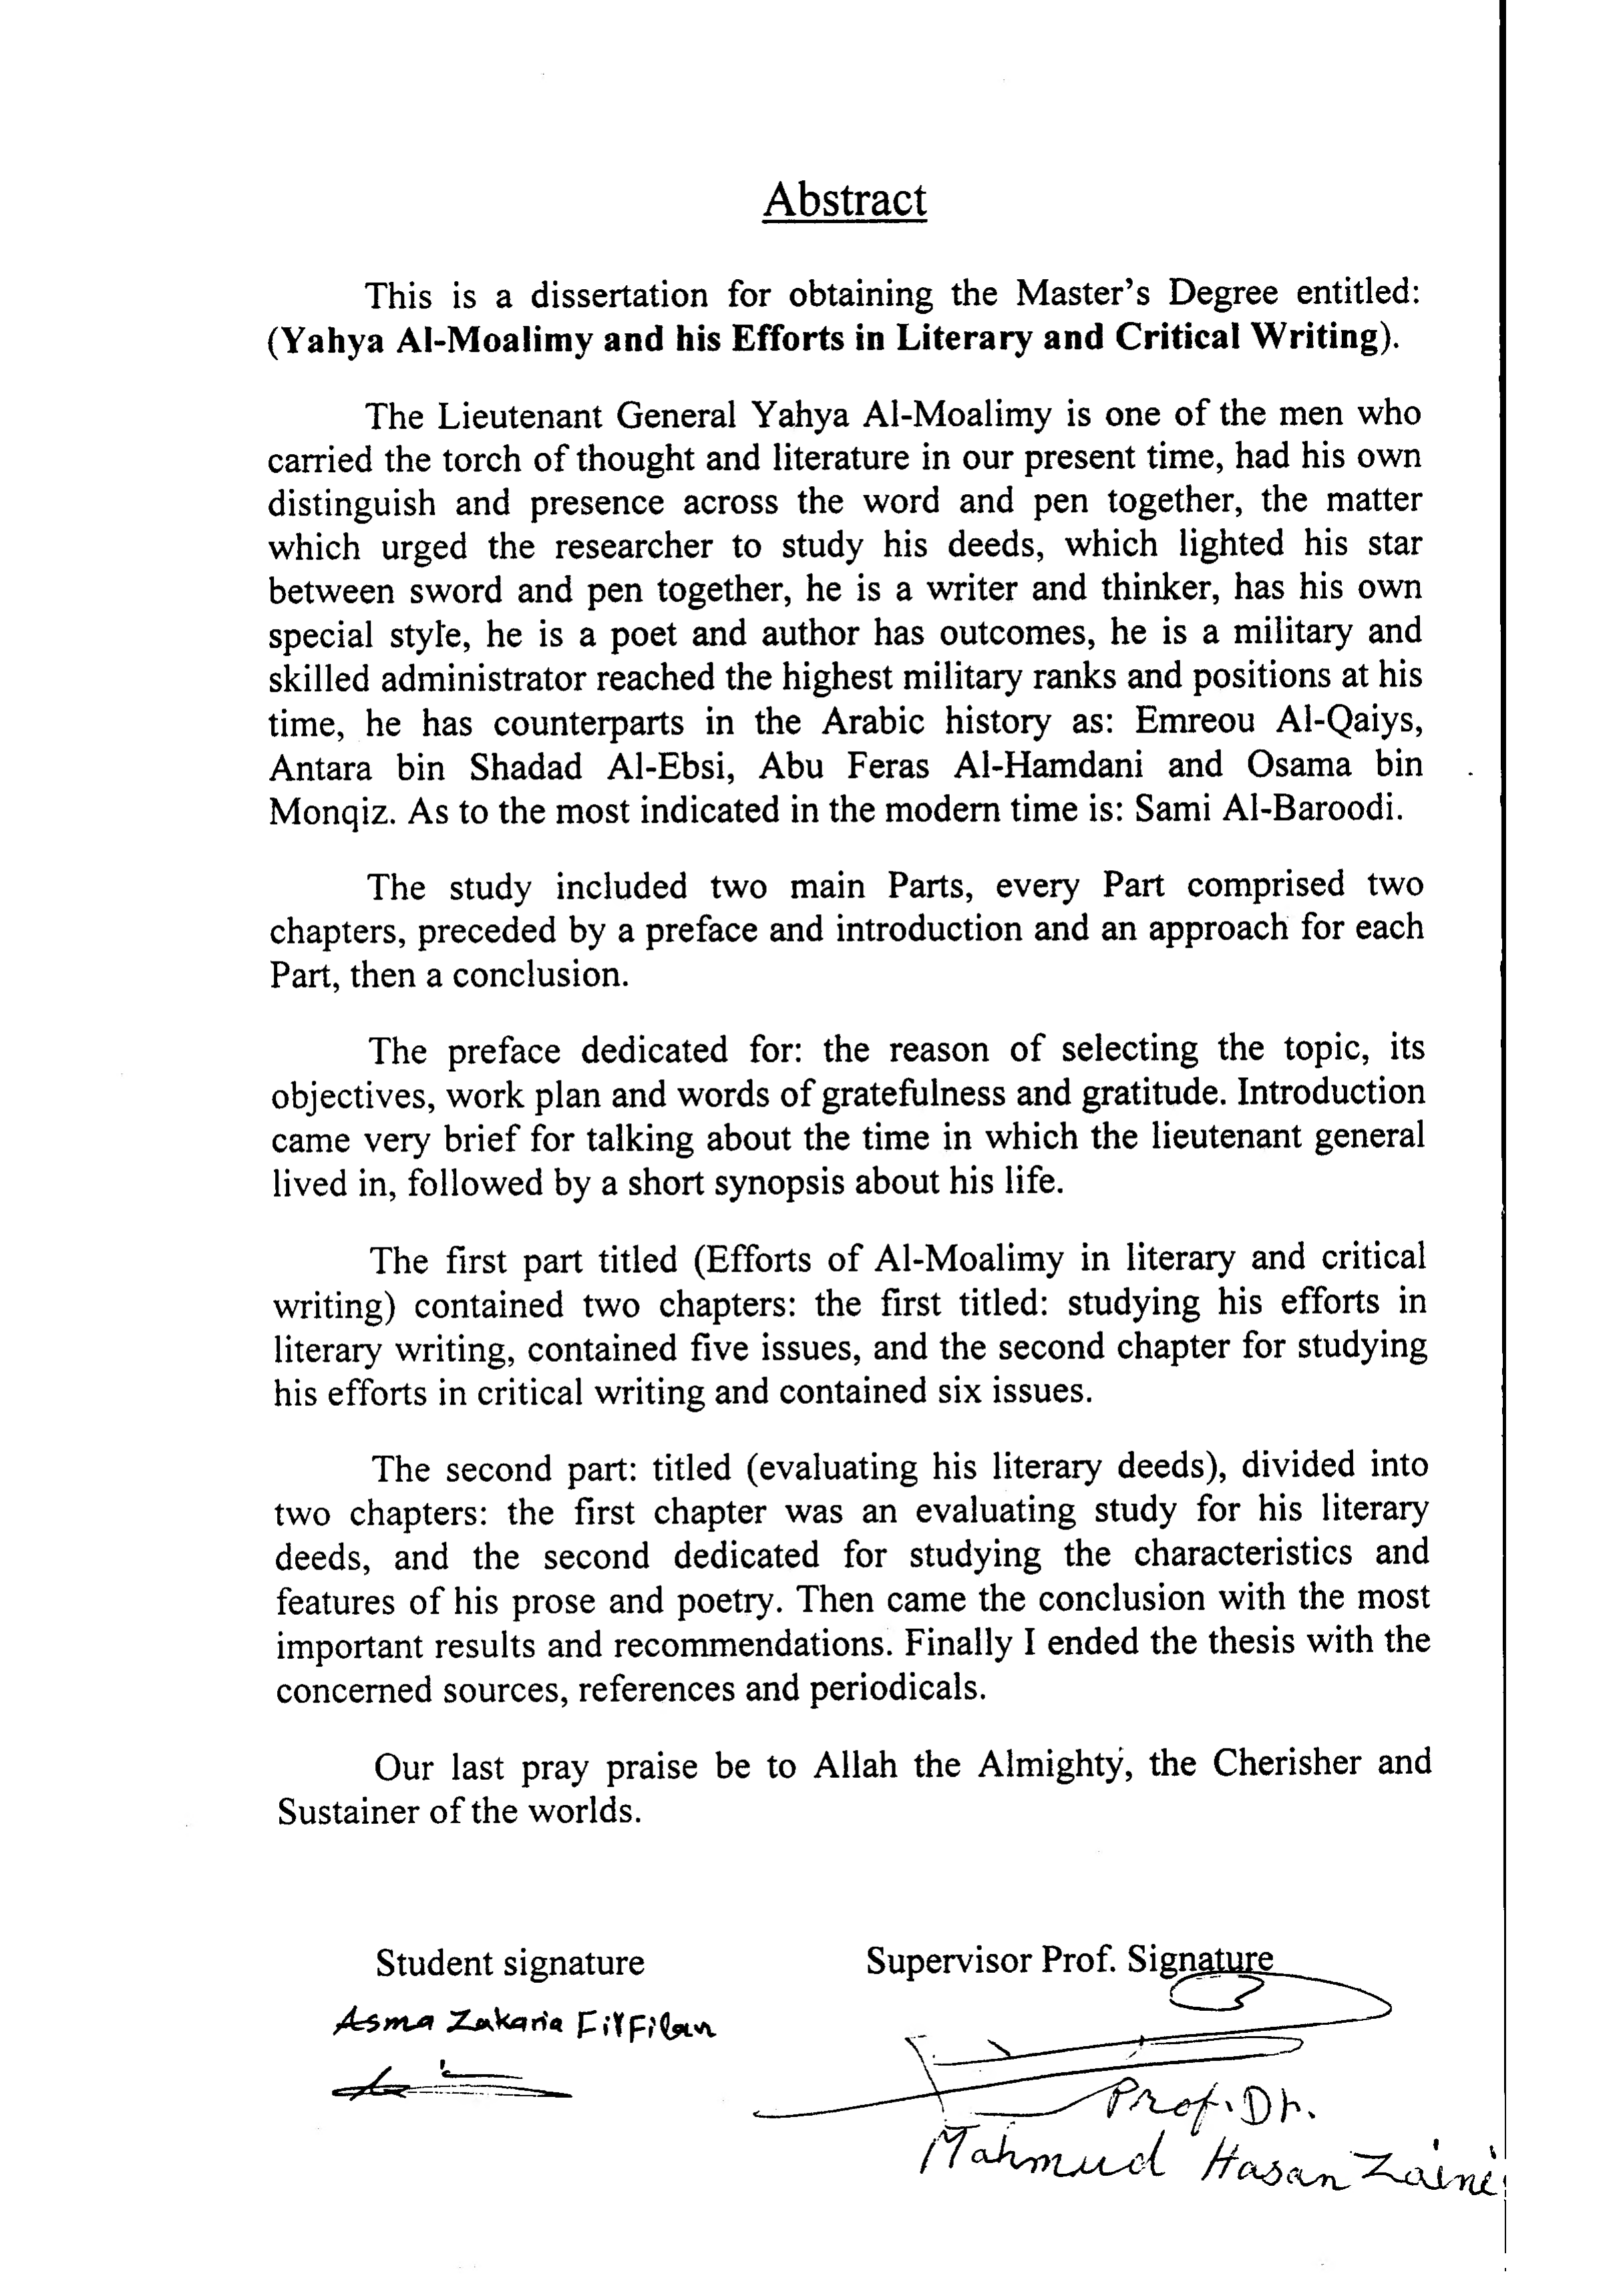 Abstract
This is a dissertation for obtaining the Master's Degree entitled:
(Yahya Al-Moalimy and his Efforts in Literary and Critical Writing).
The Lieutenant General Yahya Al-Moalimy is one of the men who
carried the torch of thought and literature in our present time, had his own
distinguish and presence across the word and pen together, the matter
which urged the researcher to study his deeds, which lighted his star
between sword and pen together, he is a writer and thinker, has his own
special style, he is a poet and author has outcomes, he is a military and
skilled administrator reached the highest military ranks and positions at his
time, he has counterparts in the Arabic history as: Emreou Al-Qaiys,
Antara bin Shadad Al-Ebsi, Abu Feras Al-Hamdani and Osama bin
Monqiz. As to the most indicated in the modern time is: Sami Al-Baroodi.
The study included two main Parts, every Part comprised two
chapters, preceded by a preface and introduction and an approach for each
Part, then a conclusion.
The preface dedicated for: the reason of selecting the topic, its
objectives, work plan and words of gratefulness and gratitude. Introduction
came very brief for talking about the time in which the lieutenant general
lived in, followed by a short synopsis about his life.
The first part titled (Efforts of Al-Moalimy in literary and critical
writing) contained two chapters: the first titled: studying his efforts in
literary writing, contained five issues, and the second chapter for studying
his efforts in critical writing and contained six issues.
The second part: titled (evaluating his literary deeds), divided into
two chapters: the first chapter was an evaluating study for his literary
deeds, and the second dedicated for studying the characteristics and
features of his prose and poetry. Then came the conclusion with the most
important results and recommendations. Finally I ended the thesis with the
concerned sources, references and periodicals.
Our last pray praise be to Allah the Almighty, the Cherisher and
Sustainer of the worlds.
Student signature
Supervisor Prof. Signature
Asma Zakaria Filfilan
Prof. Dr.
Mahmud Hasan Zaini